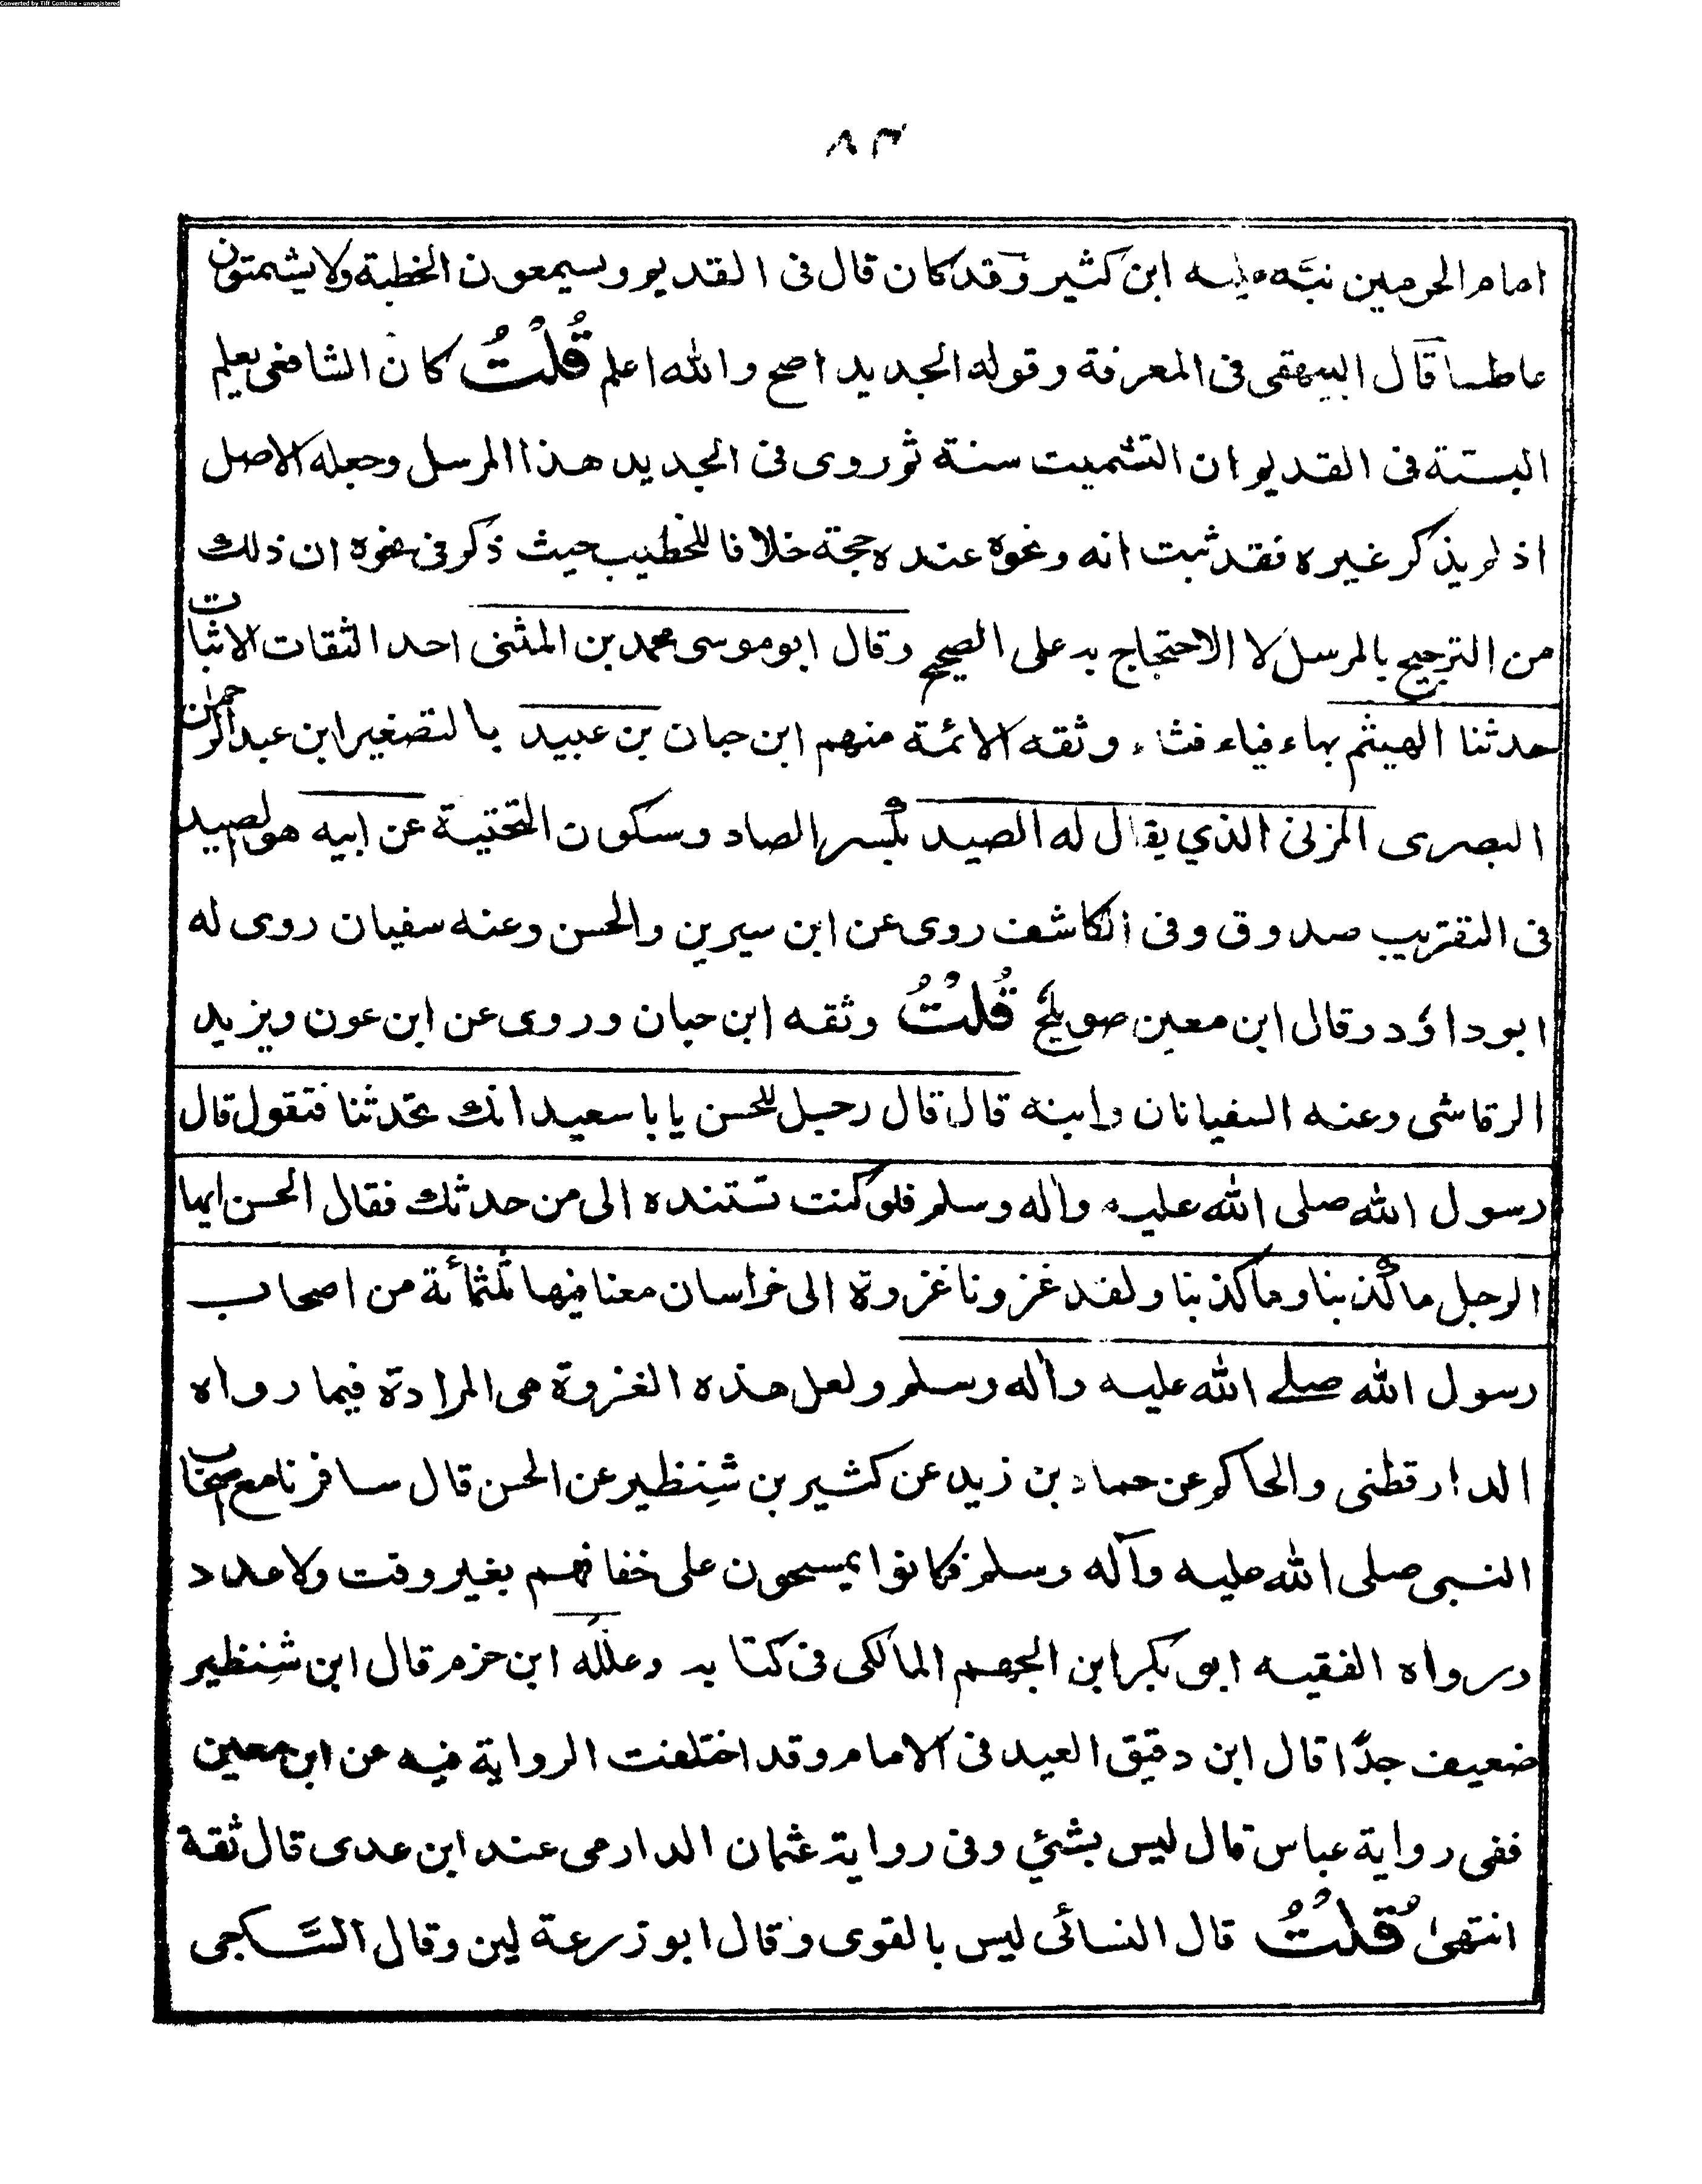 Converted by Tiff Combine - unregistered
٨٣
امام الحرمين نبّه عليه ابن كثير وقد كان قال فى القديم ويسمعون الخطبة ولا يشمتون
عاطسا قال البيهقى فى المعرفة وقوله الجديد اصح والله اعلم قُلْتُ كان الشافعى يعلم
البتة فى القديم ان التشميت سنة ثم روى فى الجديد هذا المرسل وجعله الاصل
اذ لم يذكر غيره فقد ثبت انه ونحوه عنده حجة خلافا للخطيب حيث ذكر فى نحوه ان ذلك
من الترجيح بالمرسل لا الاحتجاج به على الصحيح وقال ابو موسى محمد بن المثنى احد الثقات الاثبات
حدثنا الهيثم بهاء فياء فثاء وثقه الائمة منهم ابن حبان بن عبيد بالتصغير ابن عبدالرحمن
البصرى المزنى الذي يقال له الصيد بكسر الصاد وسكون التحتية عن ابيه هو الصيد
فى التقريب صدوق وفى الكاشف روى عن ابن سيرين والحسن وعنه سفيان روى له
ابو داؤد وقال ابن معين صويلح قُلْتُ وثقه ابن حبان وروى عن ابن عون ويزيد
الرقاشى وعنه السفيانان وابنه قال قال رجل للحسن يا با سعيد انك تحدثنا فتقول قال
رسول الله صلى الله عليه واله وسلم فلو كنت تسنده الى من حدثك فقال الحسن ايها
الرجل ما كذبنا وما كذبنا ولقد غزونا غزوة الى خراسان معنا فيها ثلثمائة من اصحاب
رسول الله صلے الله عليه واله وسلم ولعل هذه الغزوة هى المرادة فيما رواه
الدارقطنى والحاكم عن حماد بن زيد عن كثير بن شِنظير عن الحسن قال سافرنا مع اصحاب
النبى صلى الله عليه وآله وسلم فكانوا يمسحون على خفافهم بغير وقت ولا عدد
ورواه الفقيه ابو بكر ابن الجهم المالكى فى كتابه وعلله ابن حزم قال ابن شِنظير
ضعيف جدّا قال ابن دقيق العيد فى الامام وقد اختلفت الرواية فيه عن ابن معين
ففى رواية عباس قال ليس بشئ وفى رواية عثمان الدارمى عند ابن عدى قال ثقة
انتهىٰ قُلْتُ قال النسائى ليس بالقوى وقال ابو زرعة لين وقال السّاجى